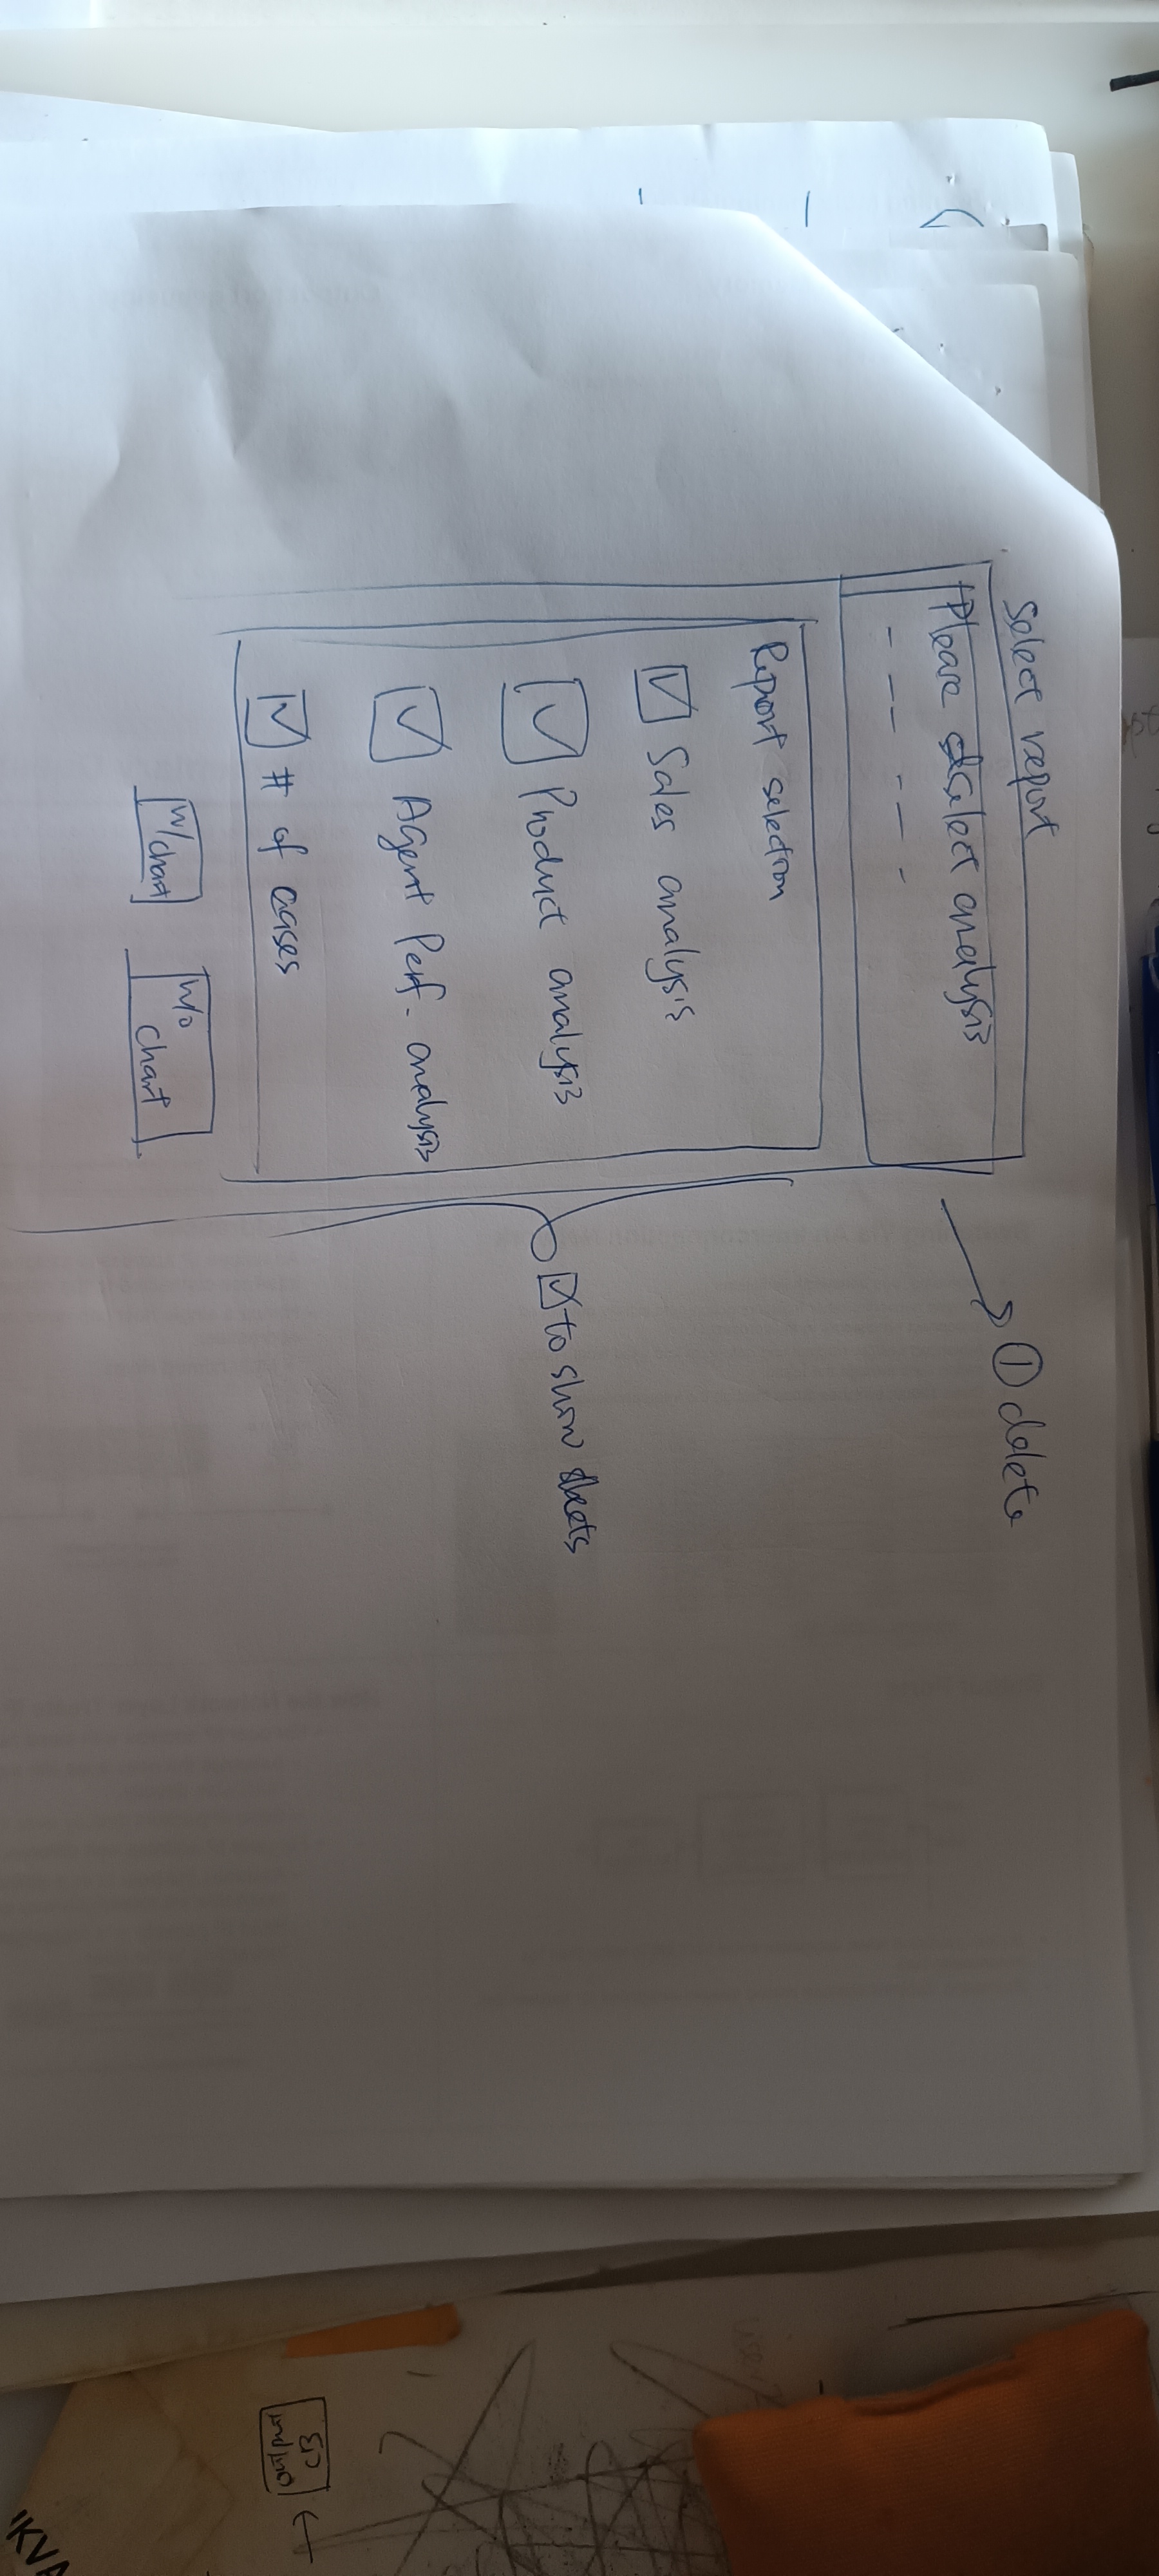 Select report
Please select analysis
① delete
Report selection
Sales analysis
Product analysis
Agent Perf. analysis
# of cases
to show sheets
w/chart
w/o
chart
output
CB
"KVA